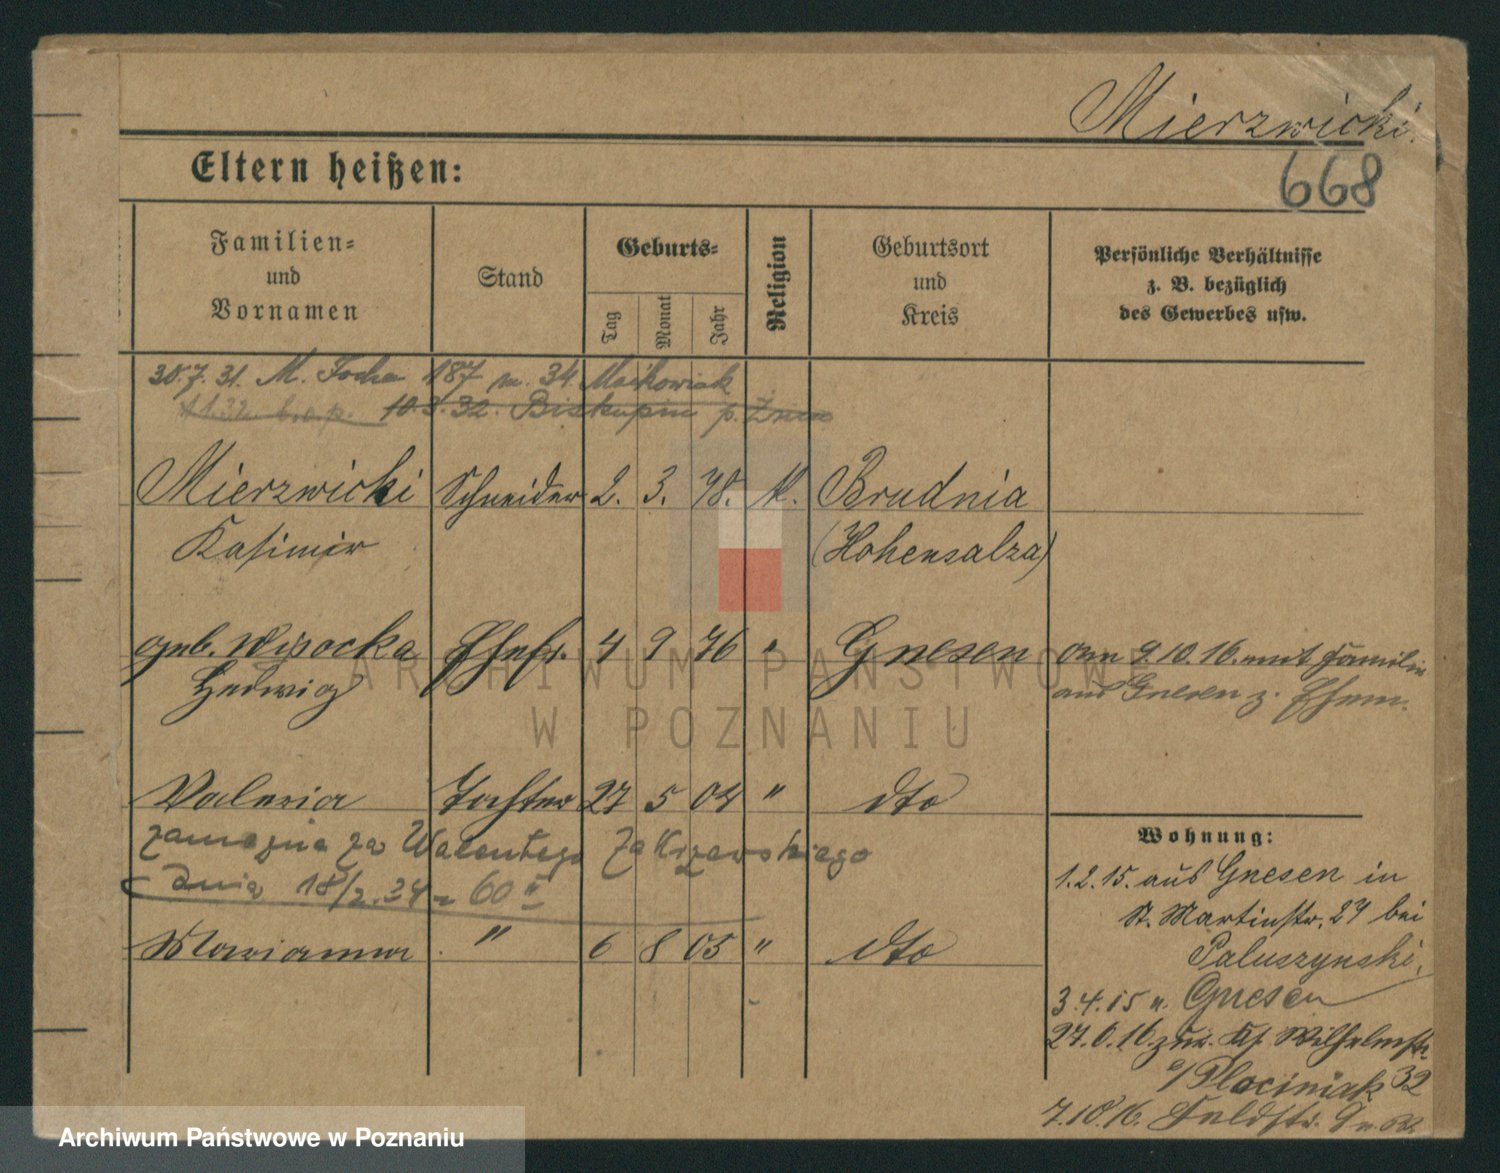 Mierzwicki.
668
Eltern heißen:
Familien= und Vornamen
Stand
Geburts=
Tag
Monat
Jahr
Religion
Geburtsort und Kreis
Persönliche Verhältnisse z. B. bezüglich des Gewerbes usw.
30.7.31. M. Focha 187 m. 34 Maikowiak
10.3.32. Biskupin p. Żnin
Mierzwicki Schneider 2. 3. 78. k. Brudnia
Kasimir (Hohensalza)
geb. Wisocka Ehefr. 4 9 76 " Gnesen am 9.10.16. mit Familie
Hedwig aus Gnesen z. Ehem.
Valeria Tochter 27 5 04 " dto
Wohnung:
zamężna za Walentego Zakrzewskiego
dnia 18/2.24
1.2.15. aus Gnesen in
St. Martinstr. 27 bei
Marianna " 6 8 05 " dto
Paluszynski,
3.4.15 n. Gnesen
27.6.16 zur. Wilhelmstr
32
b/Plociniak
7.10.16. Feldstr.
ARCHIWUM PAŃSTWOWE
W POZNANIU
Archiwum Państwowe w Poznaniu